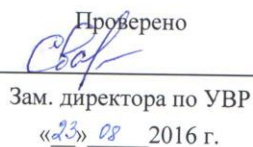 Проверено
Зам. директора по УВР
«23» 08 2016 г.